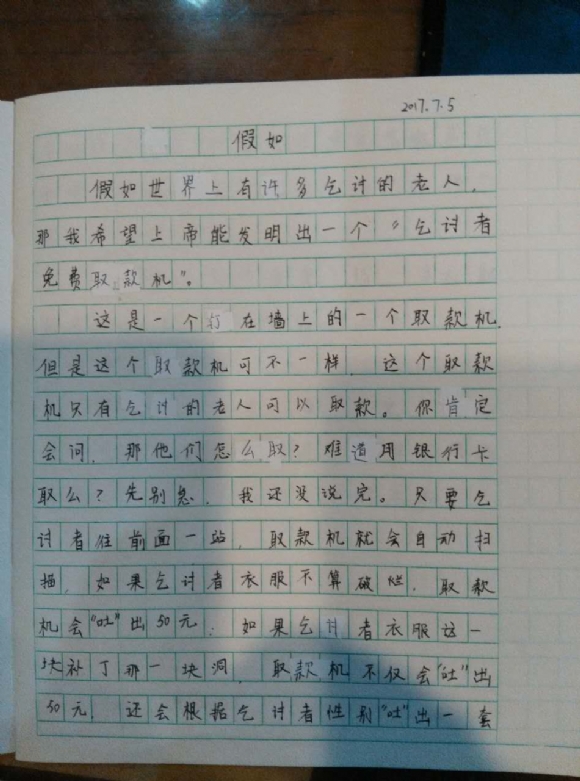 2017.7.5
假如
假如世界上有许多乞讨的老人，
那我希望上帝能发明出一个“乞讨者
免费取款机”。
这是一个打在墙上的一个取款机，
但是这个取款机可不一样，这个取款
机只有乞讨的老人可以取款。你肯定
会问，那他们怎么取？难道用银行卡
取么？先别急，我还没说完。只要乞
讨者往前面一站，取款机就会自动扫
描，如果乞讨者衣服不算破烂，取款
机会“吐”出50元；如果乞讨者衣服这一
块补丁那一块洞，取款机不仅会“吐”出
50元，还会根据乞讨者性别“吐”出一套